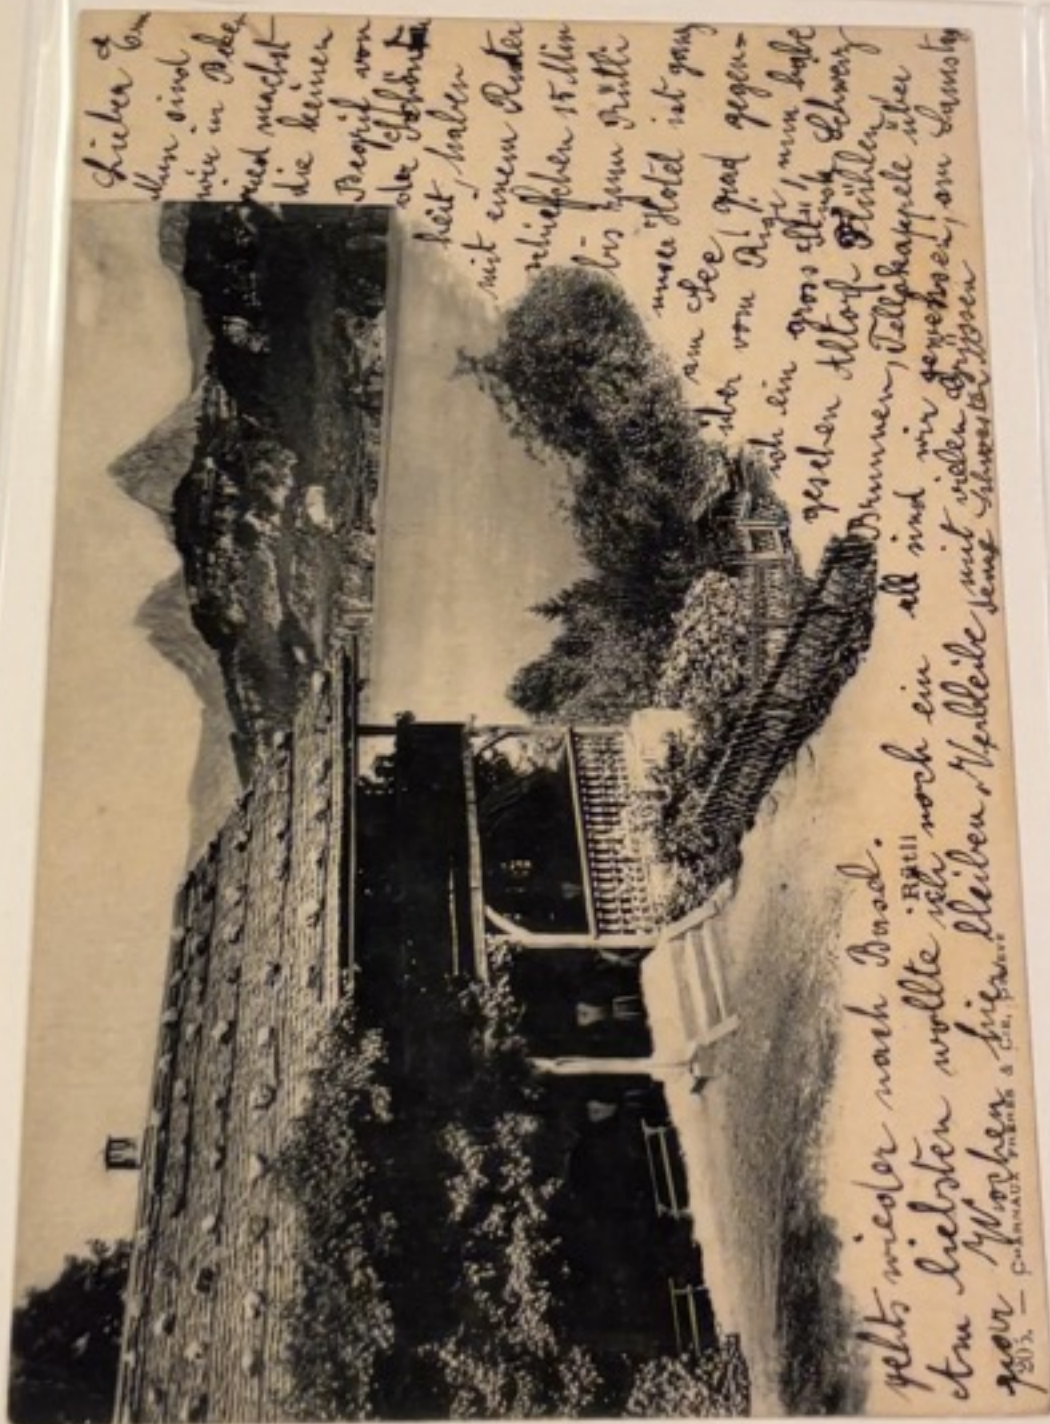 Lieber
Nun sind
wir in Bek
ried machst
die keinen
Begrif von
der Schönen
heit, haben
mit einem Ruder
schiefchen 15 Min
bis zum Rütli
unser Hotel ist ganz
am See
über vom Rigi grad gegen-
ich ein gross Stü nun habe
gesehen Altorf Flühlen
Brunnen, Tellskapelle über
all sind wir gewessen, am Samstag
gehts wieder nach Basel.
Am liebsten wollte ich noch ein
paar Wochen hier bleiben Verbleibe mit vielen Grüssen
deine Schwester
Rütli
203. — CHARNAUX FRÈRES & Cie,